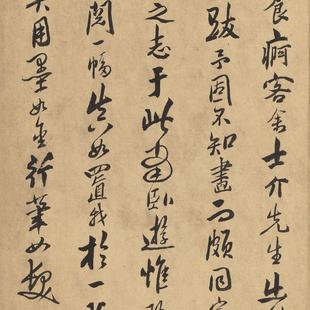 食痾客舍士介先生出
跋予固不知畫而頗同宗
之志于此當臥遊惟
閱一幅生如置我於一
其用墨如坐行筆如